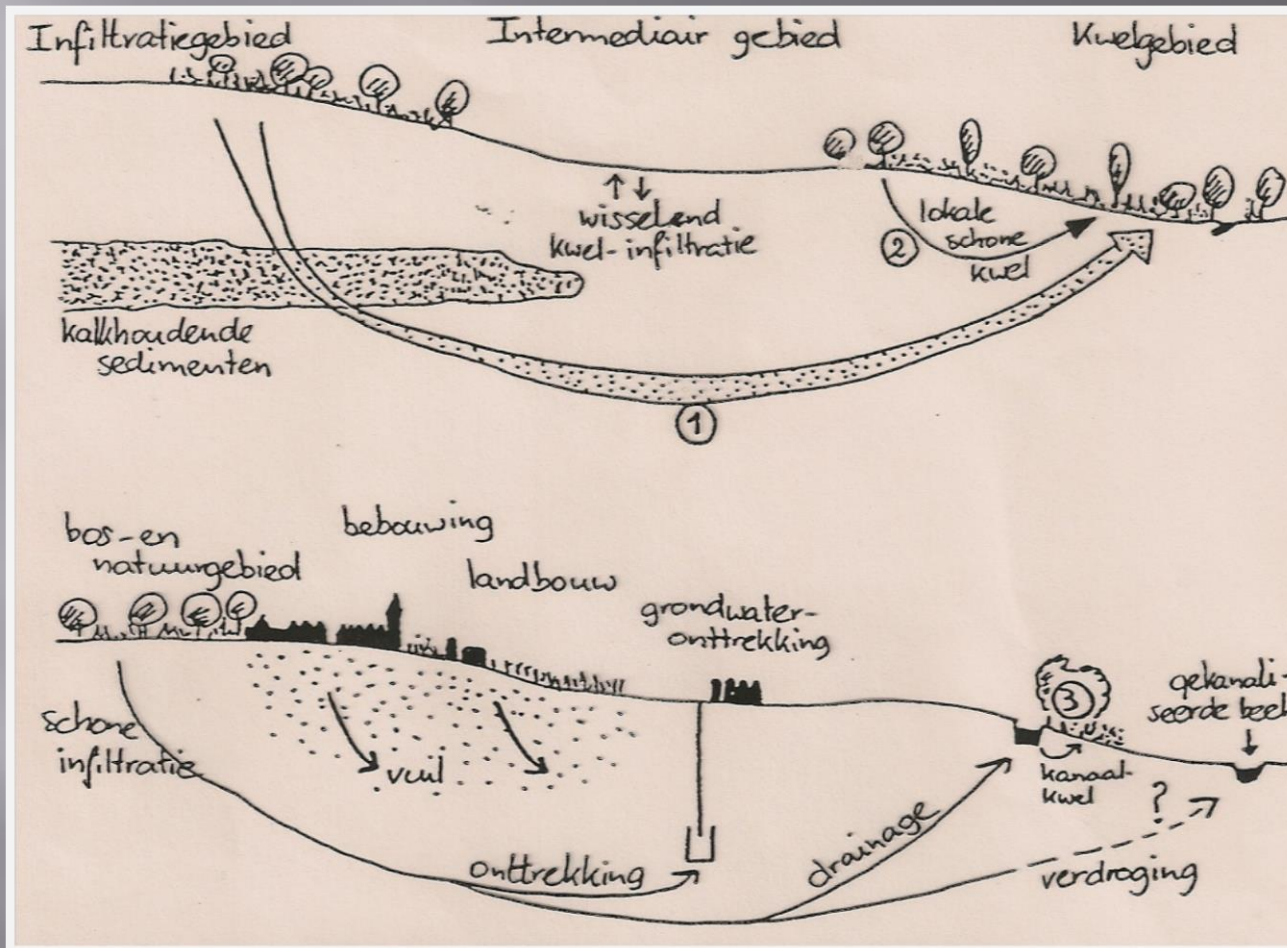 Infiltratiegebied
Intermediair gebied
Kwelgebied
↑↓
wisselend
kwel-infiltratie
lokale
schone
kwel
2
kalkhoudende
sedimenten
1
bos-en
natuurgebied
bebouwing
landbouw
grondwater-
onttrekking
3
gekanali-
seerde beek
schone
infiltratie
vuil
kanaal-
kwel
?
onttrekking
drainage
verdroging